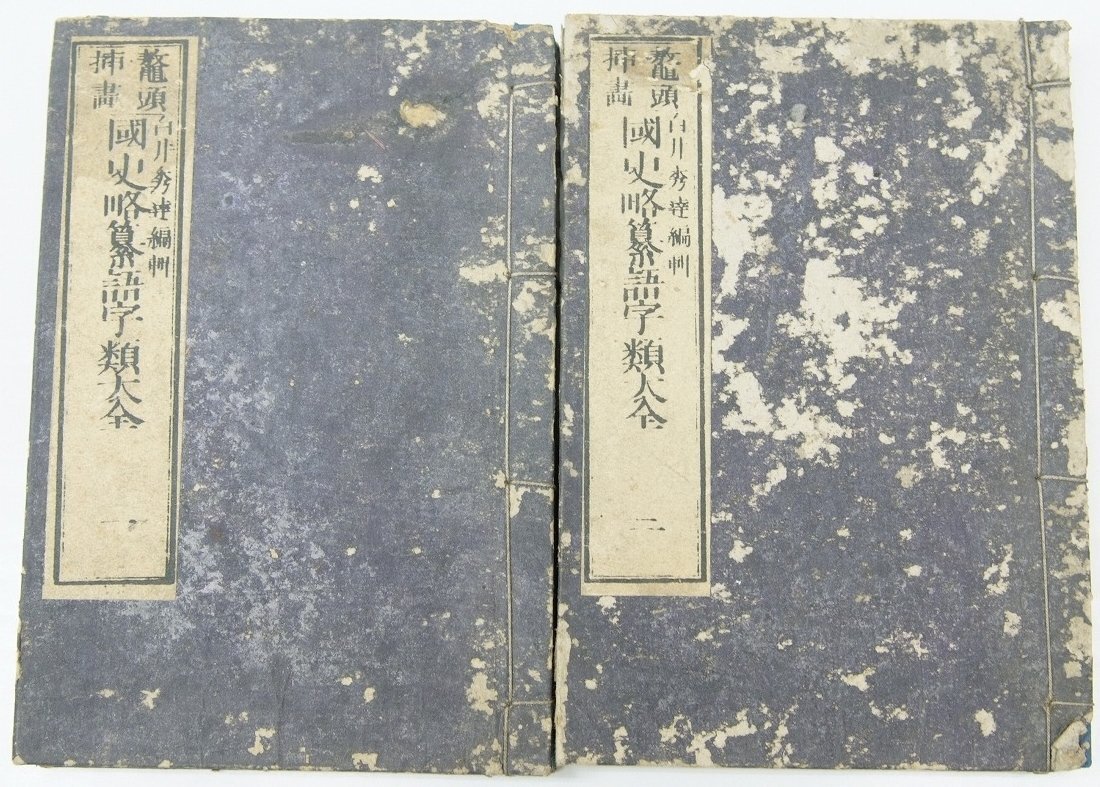 鼇頭
挿畫
白川秀達編輯
國史略纂語字類大全
一
鼇頭
挿畫
白川秀達編輯
國史略纂語字類大全
二